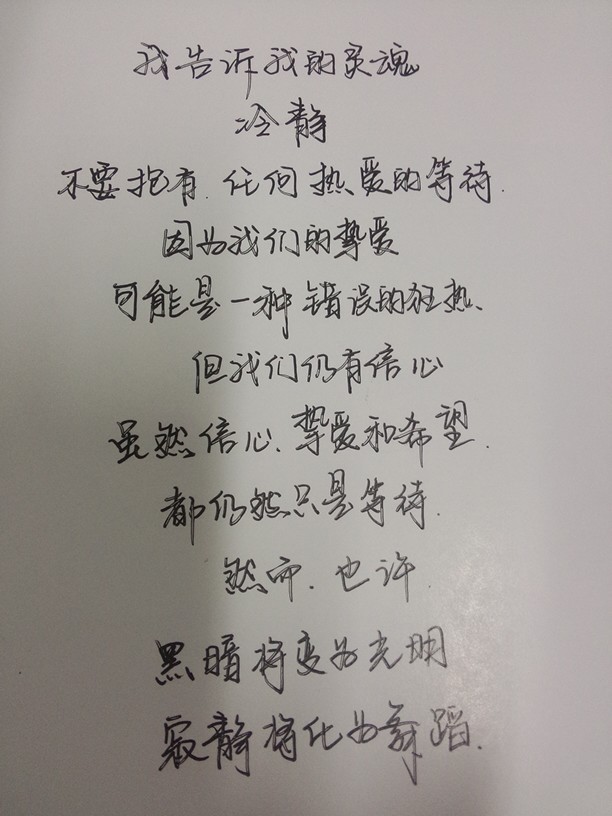 我告诉我的灵魂
冷静
不要抱有.任何热爱的等待.
因为我们的挚爱
可能是一种错误的狂热、
但我们仍有信心
虽然信心、挚爱和希望.
都仍然只是等待.
然而.也许.
黑暗将变为光明
寂静将化为舞蹈.